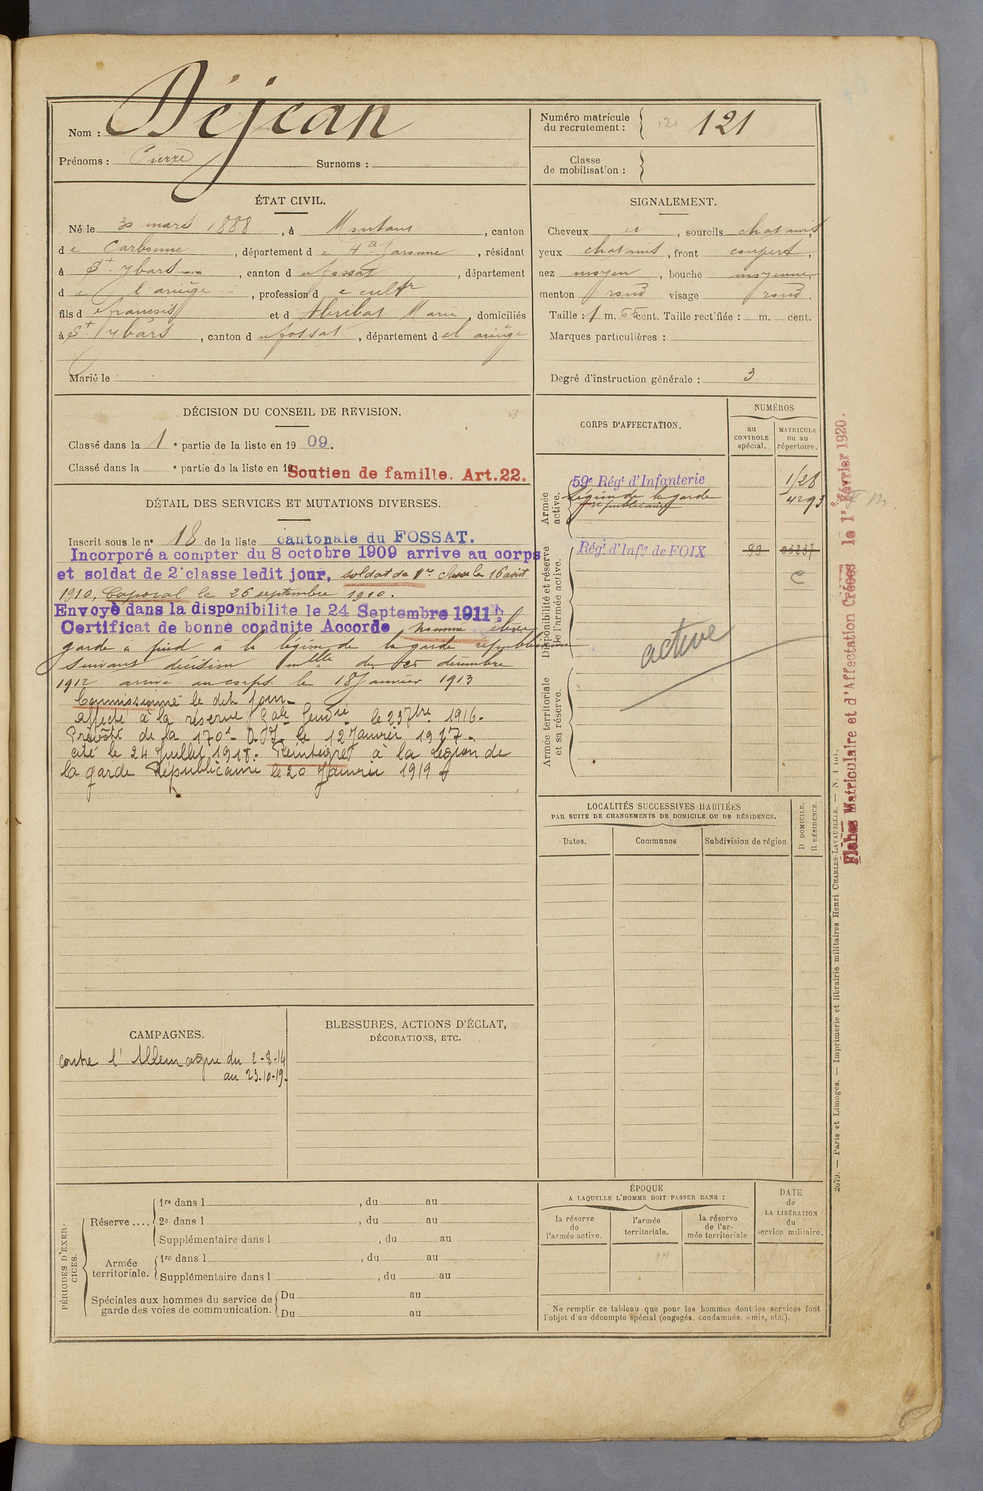 Nom : Déjean
Prénoms : Pierre Surnoms :
Numéro matricule du recrutement : 121 121
Classe de mobilisation :
ÉTAT CIVIL.
Né le 30 mars 1888, à Montaut, canton
de Carbonne, département de Hte Garonne, résidant
à St Ybars, canton du fossat, département
de l'ariège, profession de cultr
fils de françois et d Abribat Marie, domiciliés
à St Ybars, canton du fossat, département de l'ariège
Marié le
SIGNALEMENT.
Cheveux et, sourcils chatains,
yeux chatains, front
nez moyen, bouche moyenne,
menton rond visage rond.
Taille : 1 m. 65 cent. Taille rectifiée : m. cent.
Marques particulières :
Degré d'instruction générale : 3
DÉCISION DU CONSEIL DE REVISION.
Classé dans la 1e partie de la liste en 1909.
Classé dans la e partie de la liste en 19
Soutien de famille. Art.22.
DÉTAIL DES SERVICES ET MUTATIONS DIVERSES.
Inscrit sous le n° 18 de la liste cantonale du FOSSAT.
Incorporé a compter du 8 octobre 1909 arrive au corps
et soldat de 2e classe ledit jour, soldat de 1re classe le 16 avril
1910, Caporal le 26 septembre 1910.
Envoyé dans la disponibilite le 24 Septembre 1911
Certificat de bonne conduite Accordé nommé élève
garde à pied à la légion de la garde républicaine
suivant décision mlle du 25 décembre
1912 arrivé au corps le 18 Janvier 1913
Commissionné le dit jour
affecté à la réserve Gale Gendie le 23 7bre 1916.
Prévôté de la 170e D.I. le 12 Janvier 1917.
cité le 24 Juillet 1918. Réintégré à la Légion de
la garde Républicaine le 20 Janvier 1919
CORPS D'AFFECTATION.
NUMÉROS
au CONTROLE spécial.
MATRICULE ou au répertoire.
Armée active.
59e Régt d'Infanterie 1/28
Légion de la garde républicaine 4293
Disponibilité et réserve de l'armée active.
Régt d'Infie de FOIX
C
active
Armée territoriale et sa réserve.
Fiches Matriculaire et d'Affectation Créées le 1e Février 1920.
LOCALITÉS SUCCESSIVES HABITÉES
PAR SUITE DE CHANGEMENTS DE DOMICILE OU DE RÉSIDENCE.
Dates. Communes Subdivision de région.
D DOMICILE.
R RÉSIDENCE.
CAMPAGNES.
contre l'Allemagne du 2-8-14
au 23-10-19.
BLESSURES, ACTIONS D'ÉCLAT,
DÉCORATIONS, ETC.
PÉRIODES D'EXERCICES.
Réserve .... 1re dans l , du au
2e dans l , du au
Supplémentaire dans l , du au
Armée territoriale. 1re dans l , du au
Supplémentaire dans l , du au
Spéciales aux hommes du service de garde des voies de communication. Du au
Du au
ÉPOQUE
A LAQUELLE L'HOMME DOIT PASSER DANS :
la réserve de l'armée active.
l'armée territoriale.
la réserve de l'armée territoriale
DATE de LA LIBÉRATION du service militaire.
Ne remplir ce tableau que pour les hommes dont les services font
l'objet d'un décompte spécial (engagés, condamnés, omis, etc.).
2073. — Paris et Limoges. — Imprimerie et librairie militaires Henri CHARLES-LAVAUZELLE. —